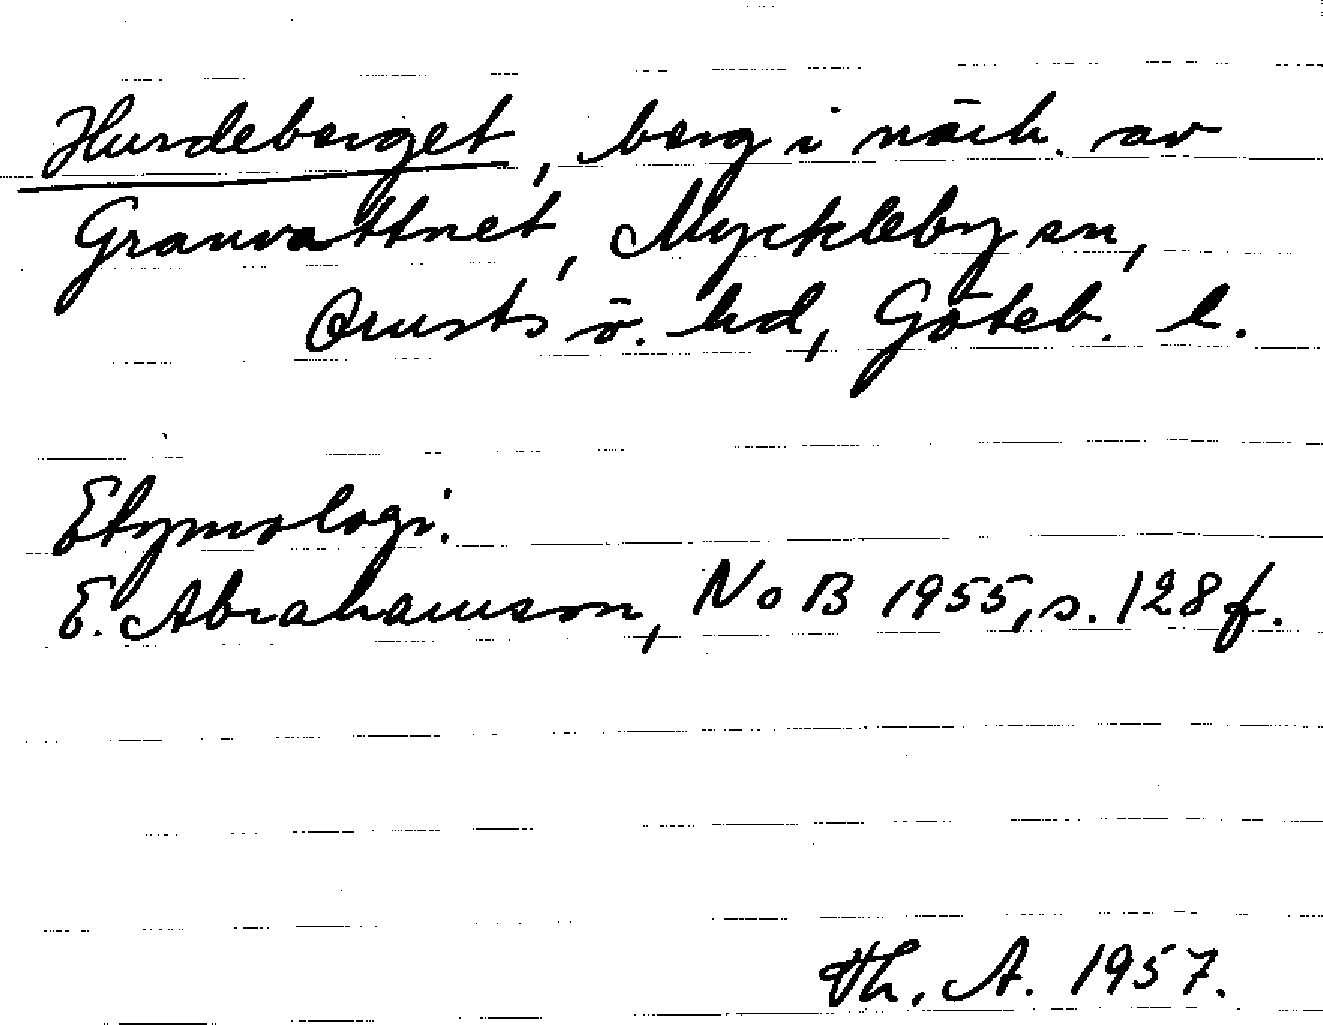 Hurdeberget, berg i närh. av
Granvattnet, Myckleby sn,
Orusts ö. hd, Göteb. l.
Etymologi.
E. Abrahamson, NoB 1955, s. 128 f.
Th. A. 1957.